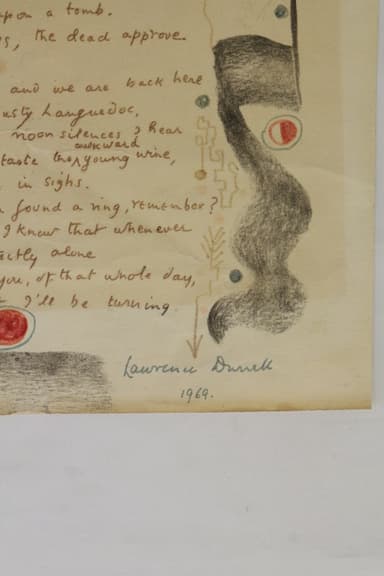 upon a tomb.
, the dead approve.
and we are back here
Languedoc,
noon silences I hear
awkward
taste the young wine,
in sighs.
found a ring, remember?
I know that whenever
alone
you, of that whole day,
I'll be turning
Lawrence Durrell
1969.